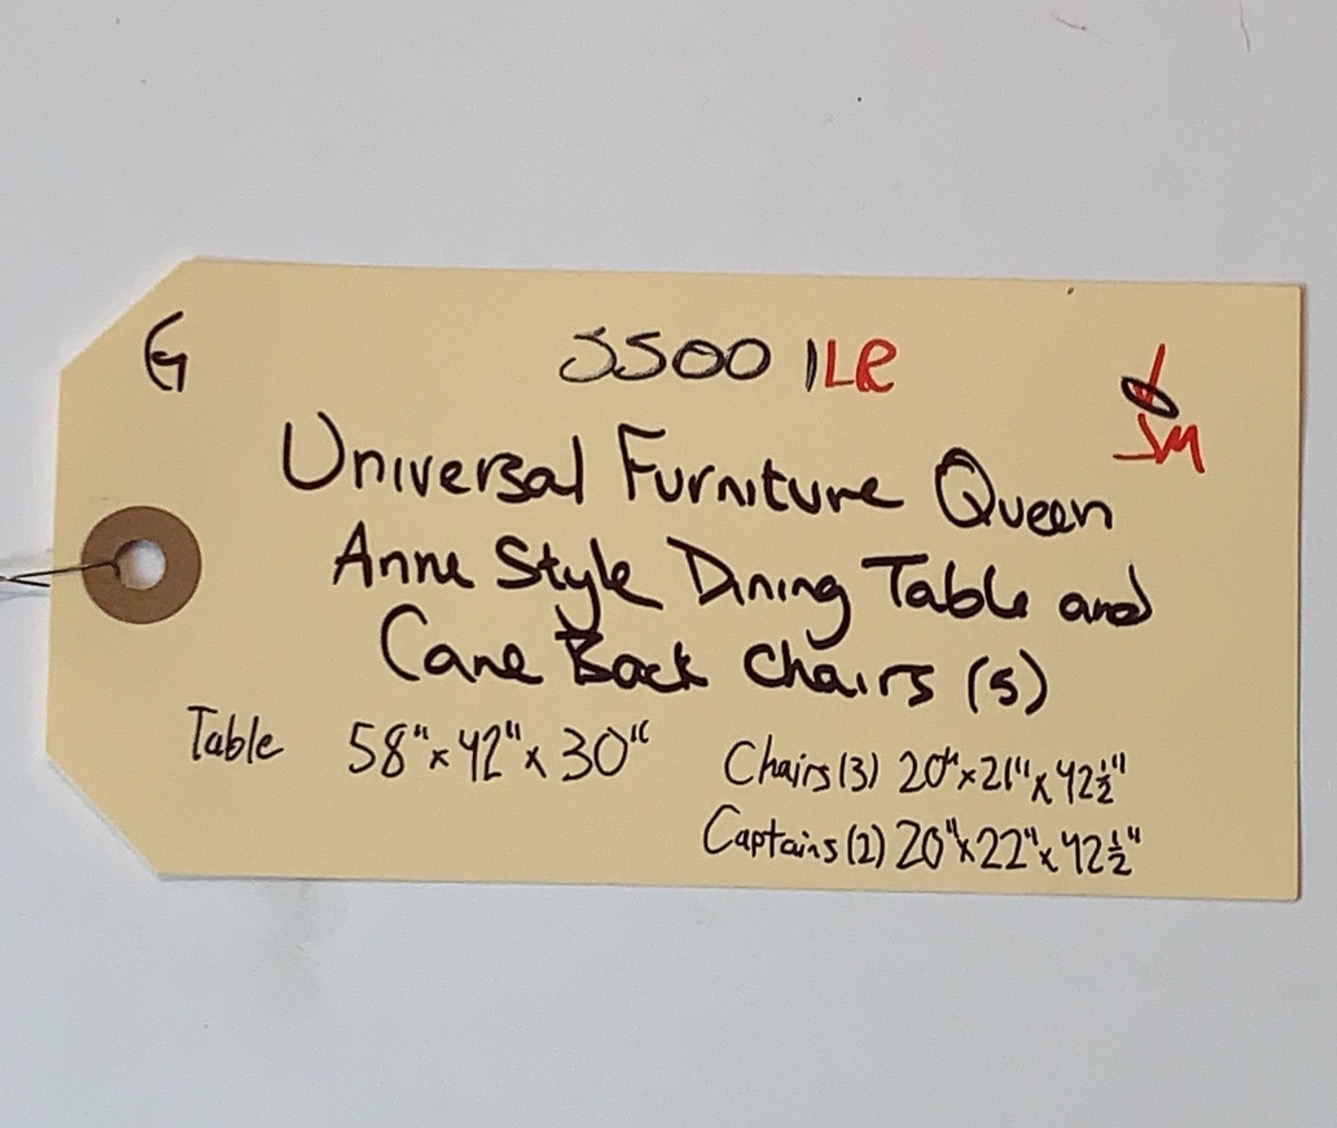 G
5500 1LR
JM
Universal Furniture Queen
Anne Style Dining Table and
Cane Back Chairs (5)
Table 58"x42"x30"
Chairs (3) 20"x21"x42½"
Captains (2) 20"x22"x42½"